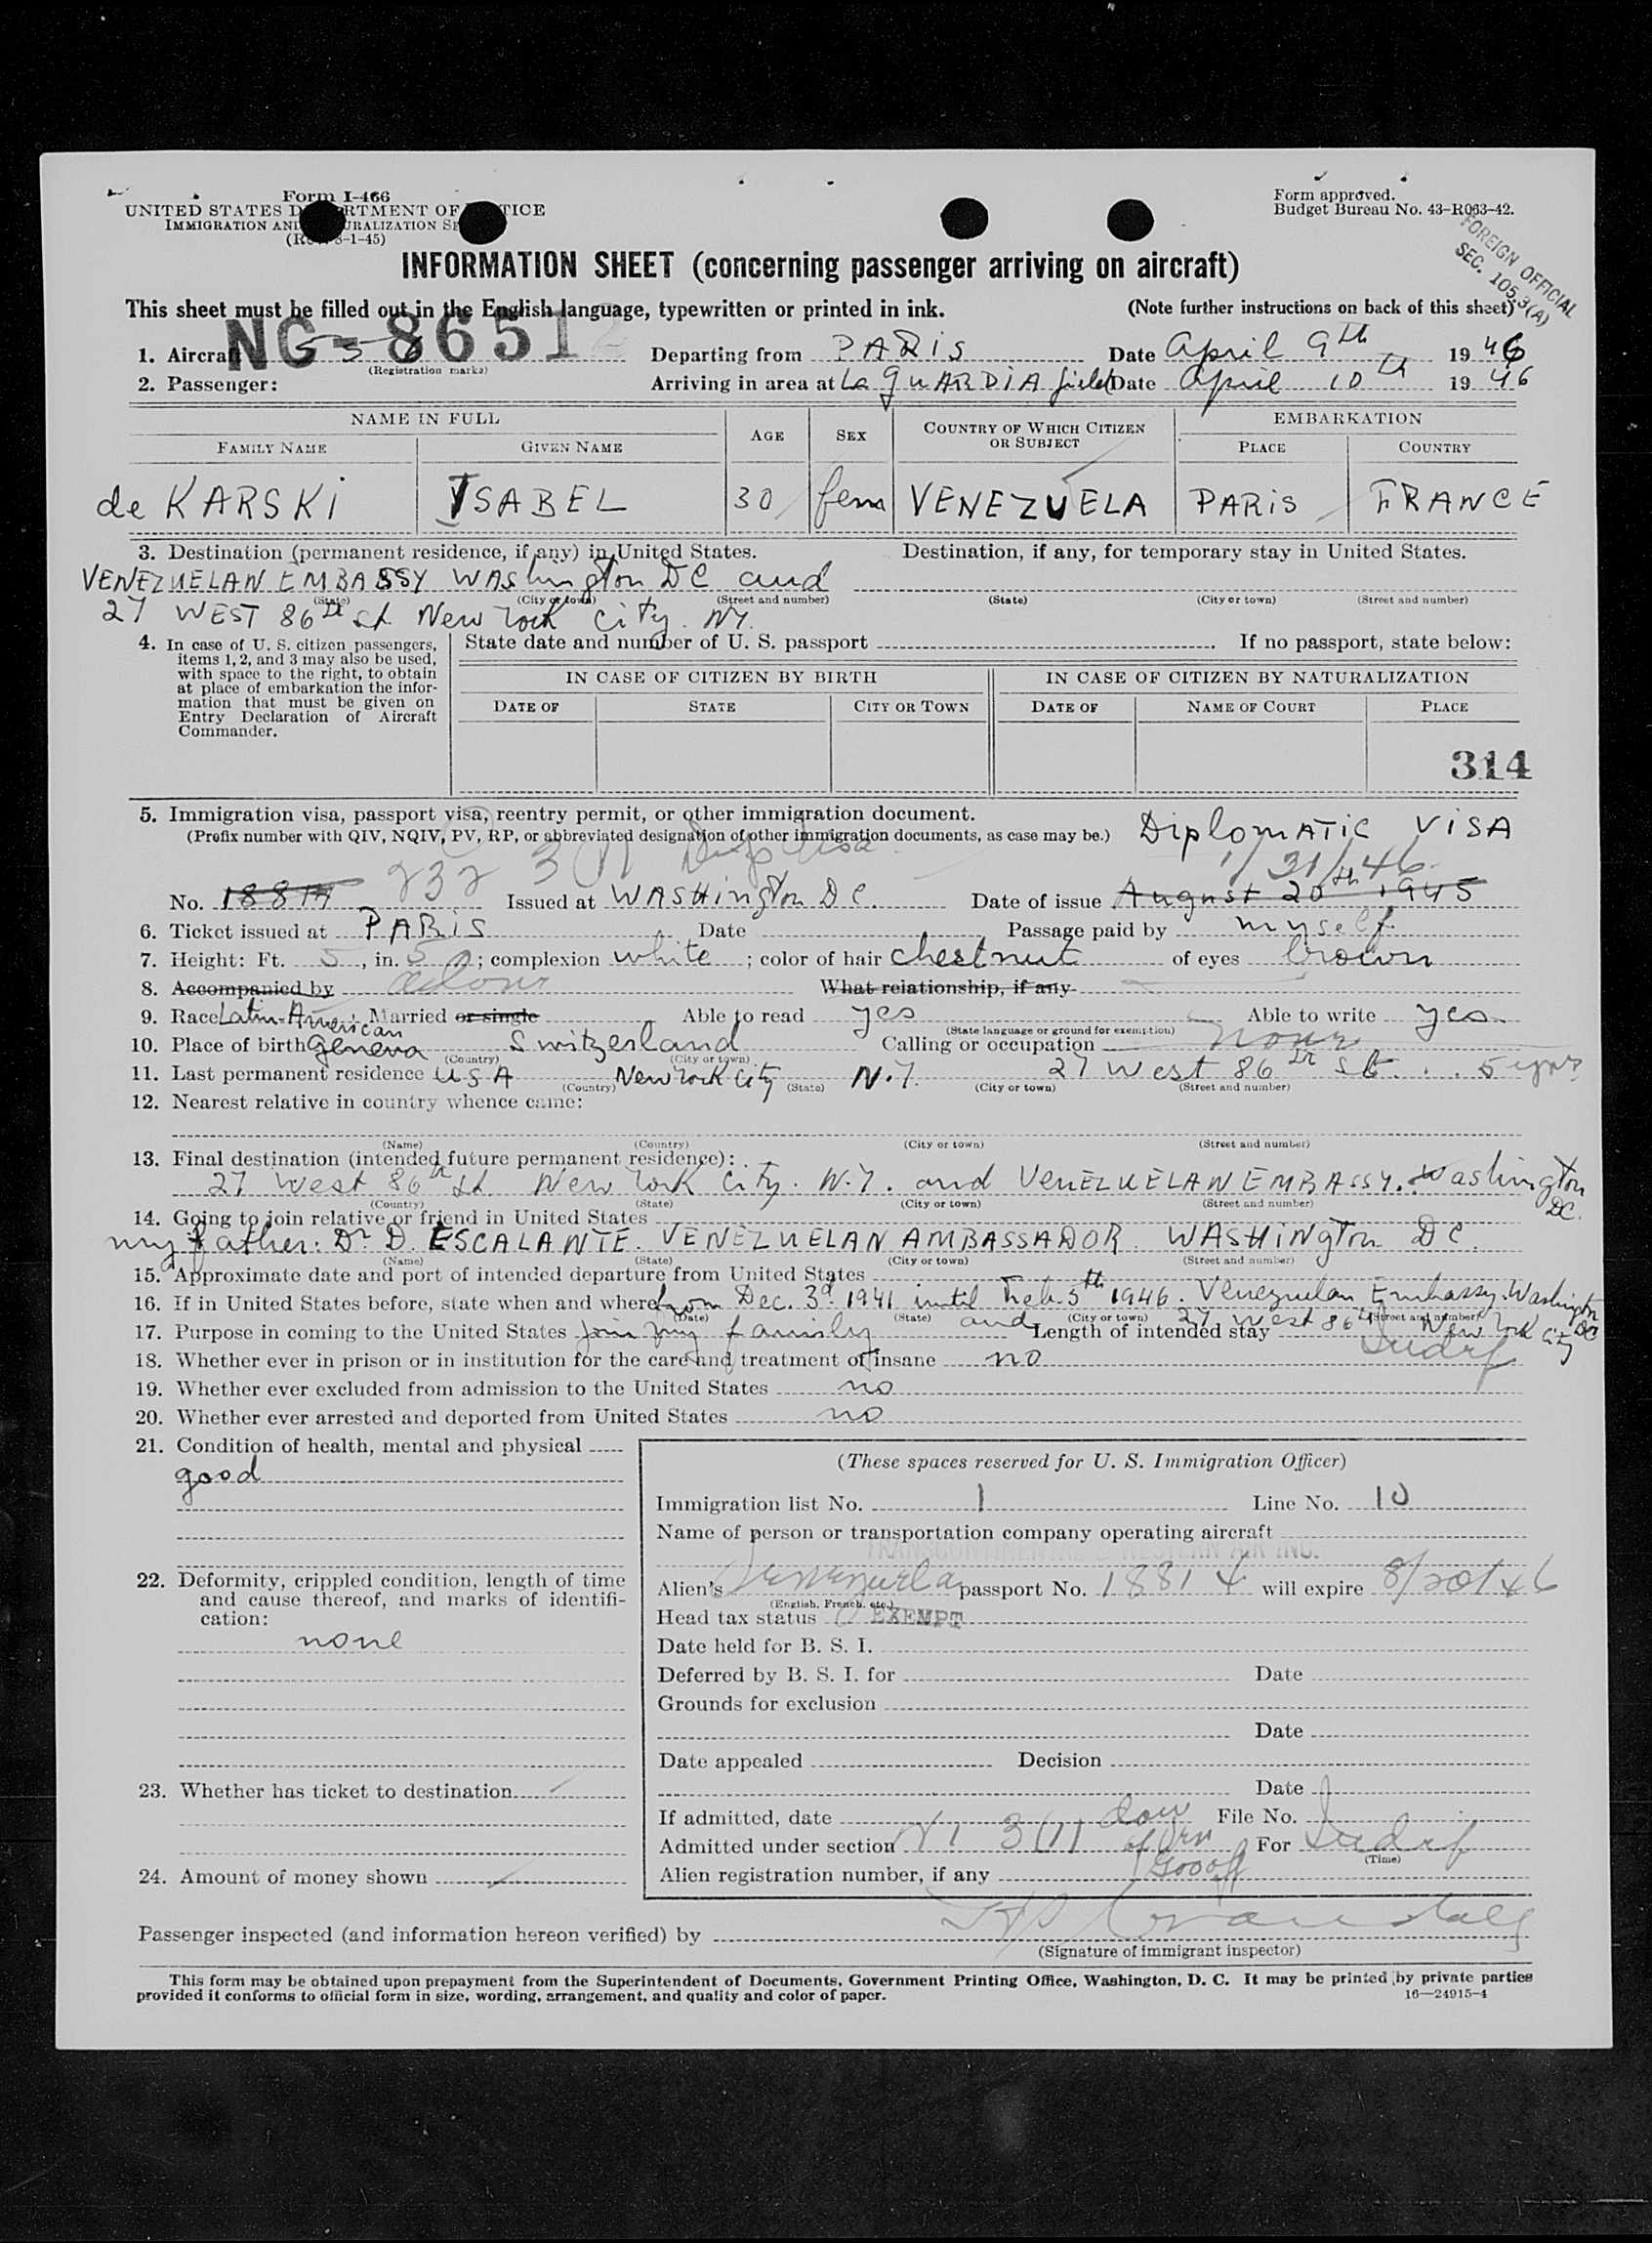 Form I-466
UNITED STATES DEPARTMENT OF JUSTICE
IMMIGRATION AND NATURALIZATION SE
(Rev. 8-1-45)
Form approved.
Budget Bureau No. 43-R063-42.
FOREIGN OFFICIAL
SEC. 105.3(A)
INFORMATION SHEET (concerning passenger arriving on aircraft)
This sheet must be filled out in the English language, typewritten or printed in ink. (Note further instructions on back of this sheet)
1. Aircraft NC-86512 Departing from PARIS Date April 9th 1946
(Registration marks)
2. Passenger: Arriving in area at La GUARDIA field Date April 10th 1946
NAME IN FULL AGE SEX COUNTRY OF WHICH CITIZEN OR SUBJECT EMBARKATION
FAMILY NAME GIVEN NAME PLACE COUNTRY
de KARSKI YSABEL 30 fem VENEZUELA PARIS FRANCE
3. Destination (permanent residence, if any) in United States. Destination, if any, for temporary stay in United States.
VENEZUELAN EMBASSY WAShington DC and
(State) (City or town) (Street and number) (State) (City or town) (Street and number)
27 WEST 86th St. New York City. NY.
4. In case of U. S. citizen passengers, items 1, 2, and 3 may also be used, with space to the right, to obtain at place of embarkation the information that must be given on Entry Declaration of Aircraft Commander.
State date and number of U. S. passport . If no passport, state below:
IN CASE OF CITIZEN BY BIRTH IN CASE OF CITIZEN BY NATURALIZATION
DATE OF STATE CITY OR TOWN DATE OF NAME OF COURT PLACE
314
5. Immigration visa, passport visa, reentry permit, or other immigration document.
(Prefix number with QIV, NQIV, PV, RP, or abbreviated designation of other immigration documents, as case may be.) DiplomATIC VISA
232 3(1) Dip Visa 1/31/46
No. 18814 Issued at WASHington DC. Date of issue August 20th 1945
6. Ticket issued at PARIS Date Passage paid by myself
7. Height: Ft. 5, in. 5; complexion white; color of hair chestnut of eyes brown
8. Accompanied by alone What relationship, if any
9. Race Latin-American; Married or single Able to read yes Able to write yes
(State language or ground for exemption)
10. Place of birth Geneva Switzerland Calling or occupation none
(Country) (City or town)
11. Last permanent residence USA New York City N.Y. 27 West 86th St. 5 yrs
(Country) (State) (City or town) (Street and number)
12. Nearest relative in country whence came:
(Name) (Country) (City or town) (Street and number)
13. Final destination (intended future permanent residence):
27 West 86th St. New York City. N.Y. and VENEZUELAN EMBASSY. Washington DC.
(Country) (State) (City or town) (Street and number)
14. Going to join relative or friend in United States
my father: Dr D. ESCALANTE. VENEZUELAN AMBASSADOR WASHINgton DC.
(Name) (State) (City or town) (Street and number)
15. Approximate date and port of intended departure from United States
16. If in United States before, state when and where from Dec. 3d 1941 until Feb. 5th 1946. Venezuelan Embassy. Washington DC
(Date) (State) (City or town) (Street and number)
and 27 West 86th New York City
17. Purpose in coming to the United States Join my family Length of intended stay Indef
18. Whether ever in prison or in institution for the care and treatment of insane no
19. Whether ever excluded from admission to the United States no
20. Whether ever arrested and deported from United States no
21. Condition of health, mental and physical
good
22. Deformity, crippled condition, length of time and cause thereof, and marks of identification:
none
23. Whether has ticket to destination
24. Amount of money shown
(These spaces reserved for U. S. Immigration Officer)
Immigration list No. 1 Line No. 10
Name of person or transportation company operating aircraft
TRANSCONTINENTAL & WESTERN AIR INC.
Alien's Venezuela passport No. 18814 will expire 8/20/46
(English, French, etc.)
Head tax status EXEMPT
Date held for B. S. I.
Deferred by B. S. I. for Date
Grounds for exclusion
Date
Date appealed Decision
Date
If admitted, date File No.
Admitted under section 3(1) For Indef
(Time)
Alien registration number, if any
Passenger inspected (and information hereon verified) by
(Signature of immigrant inspector)
This form may be obtained upon prepayment from the Superintendent of Documents, Government Printing Office, Washington, D. C. It may be printed by private parties
provided it conforms to official form in size, wording, arrangement, and quality and color of paper. 16—24915-4